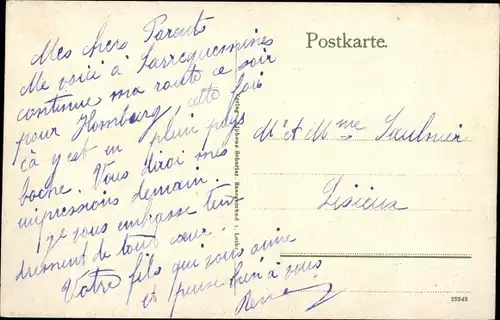 Mes chers Parents
Me voici à Sarreguemines
continue ma route ce soir
pour Hombourg, cette fois
çà y est en plein pays
boche. Vous dirai mes
impressions demain.
Je vous embrasse ten
drement de tout cœur.
Votre fils qui vous aime
et pense bien à vous
René
Postkarte.
Mr et Mme Saulnier
Lisieux
29243